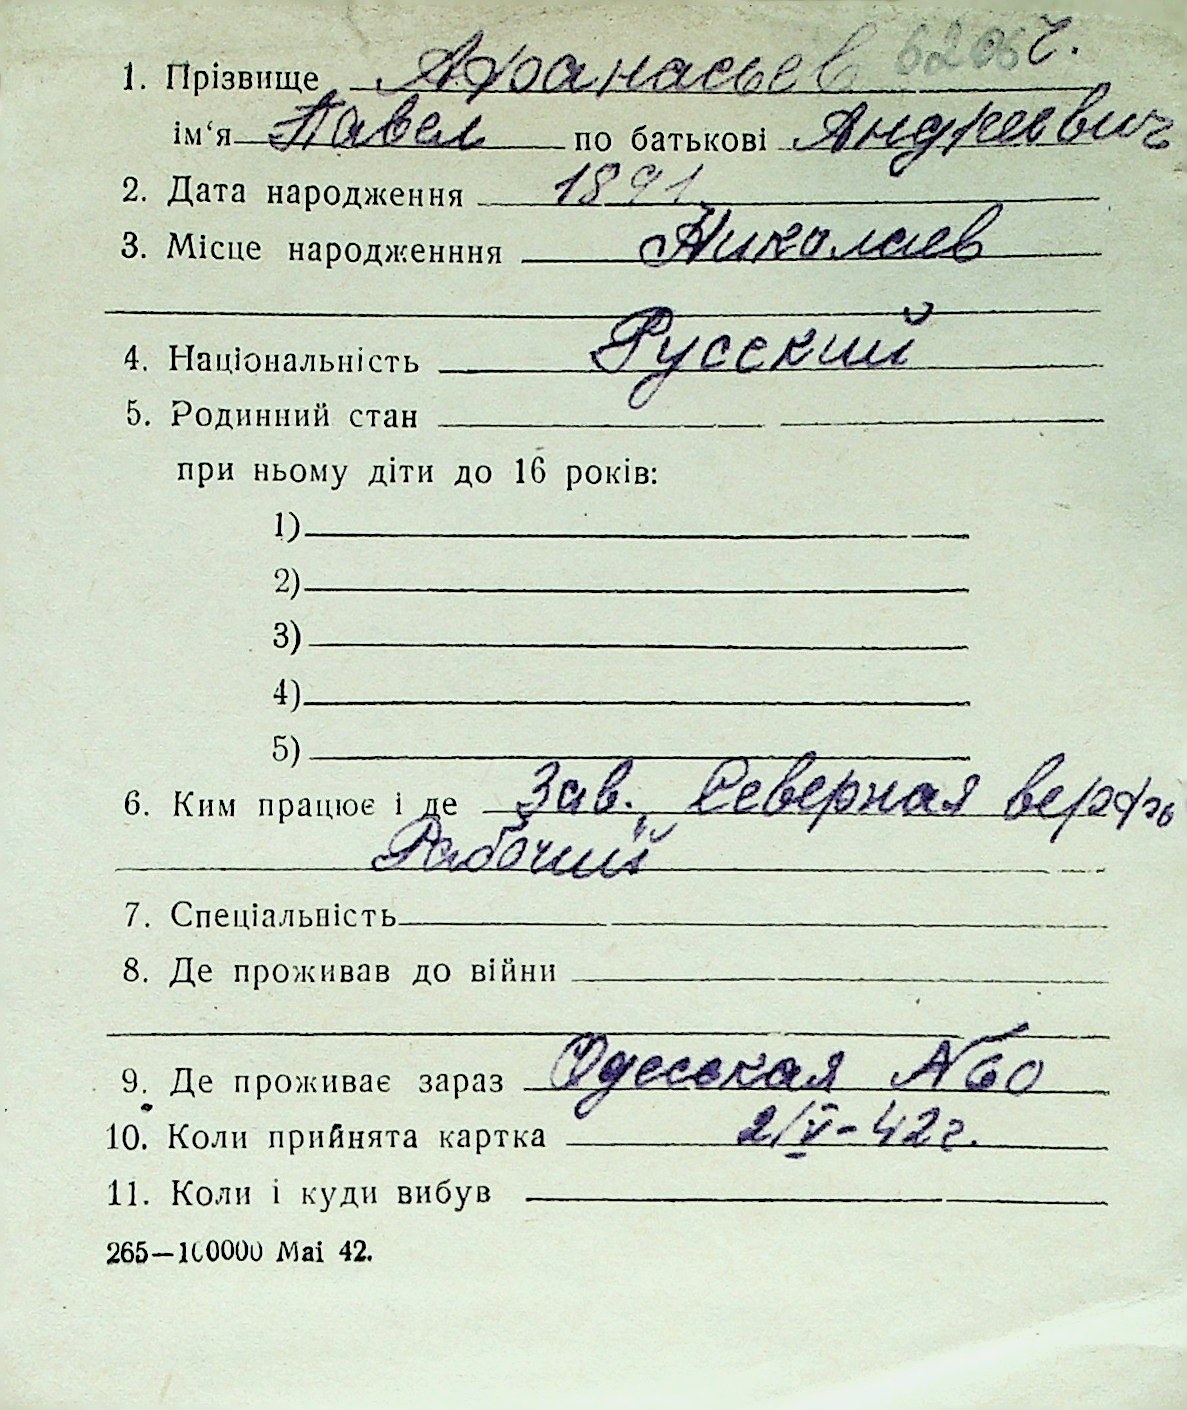 6205 г.
1. Прізвище Афанасьев
ім‘я Павел по батькові Андреевич
2. Дата народження 1891
3. Місце народженння Николаев
4. Національність Русский
5. Родинний стан
при ньому діти до 16 років:
1)
2)
3)
4)
5)
6. Ким працює і де Зав. Северная верфь
Рабочий
7. Спеціальність
8. Де проживав до війни
9. Де проживає зараз Одесская №60
10. Коли прийнята картка 2/V-42г.
11. Коли і куди вибув
265—100000 Mai 42.